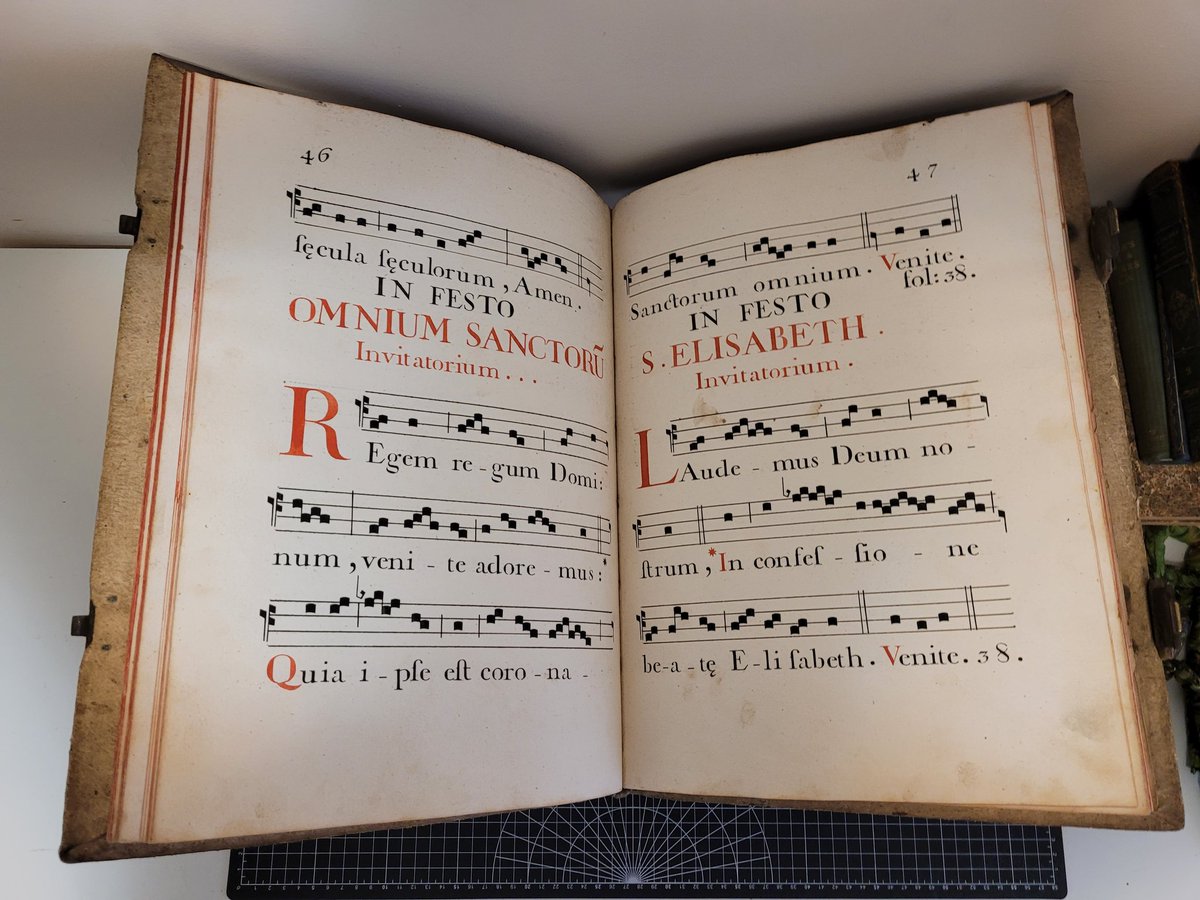 46
ſęcula ſęculorum , Amen .
IN FESTO
OMNIUM SANCTORŪ
Invitatorium . . .
REgem re - gum Domi:
num , veni - te adore - mus : *
Quia i - pſe eſt coro - na -
47
Sanctorum omnium . Venite .
fol: 38.
IN FESTO
S. ELISABETH .
Invitatorium .
LAude - mus Deum no -
ſtrum , * In confeſ - ſio - ne
be - a - tę E - li ſabeth . Venite. 38 .